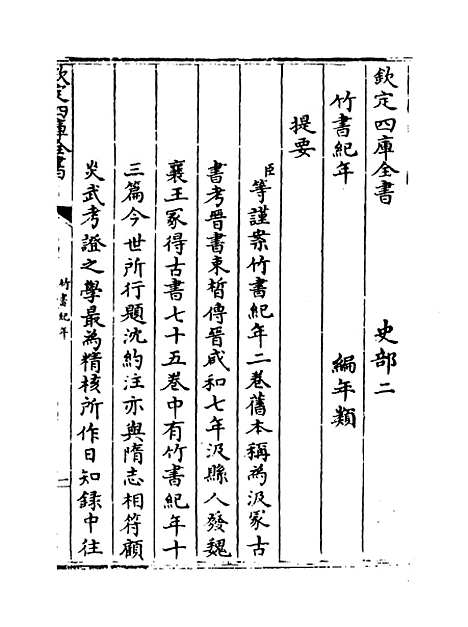 欽定四庫全書 史部二
竹書紀年 編年類
提要
臣等謹案竹書紀年二巻舊本稱為汲冢古
書考晉書束晳傳晉咸和七年汲縣人發魏
襄王冢得古書七十五巻中有竹書紀年十
三篇今世所行題沈約注亦與隋志相符顧
炎武考證之學最為精核所作日知録中往
欽定四庫全書
竹書紀年
一